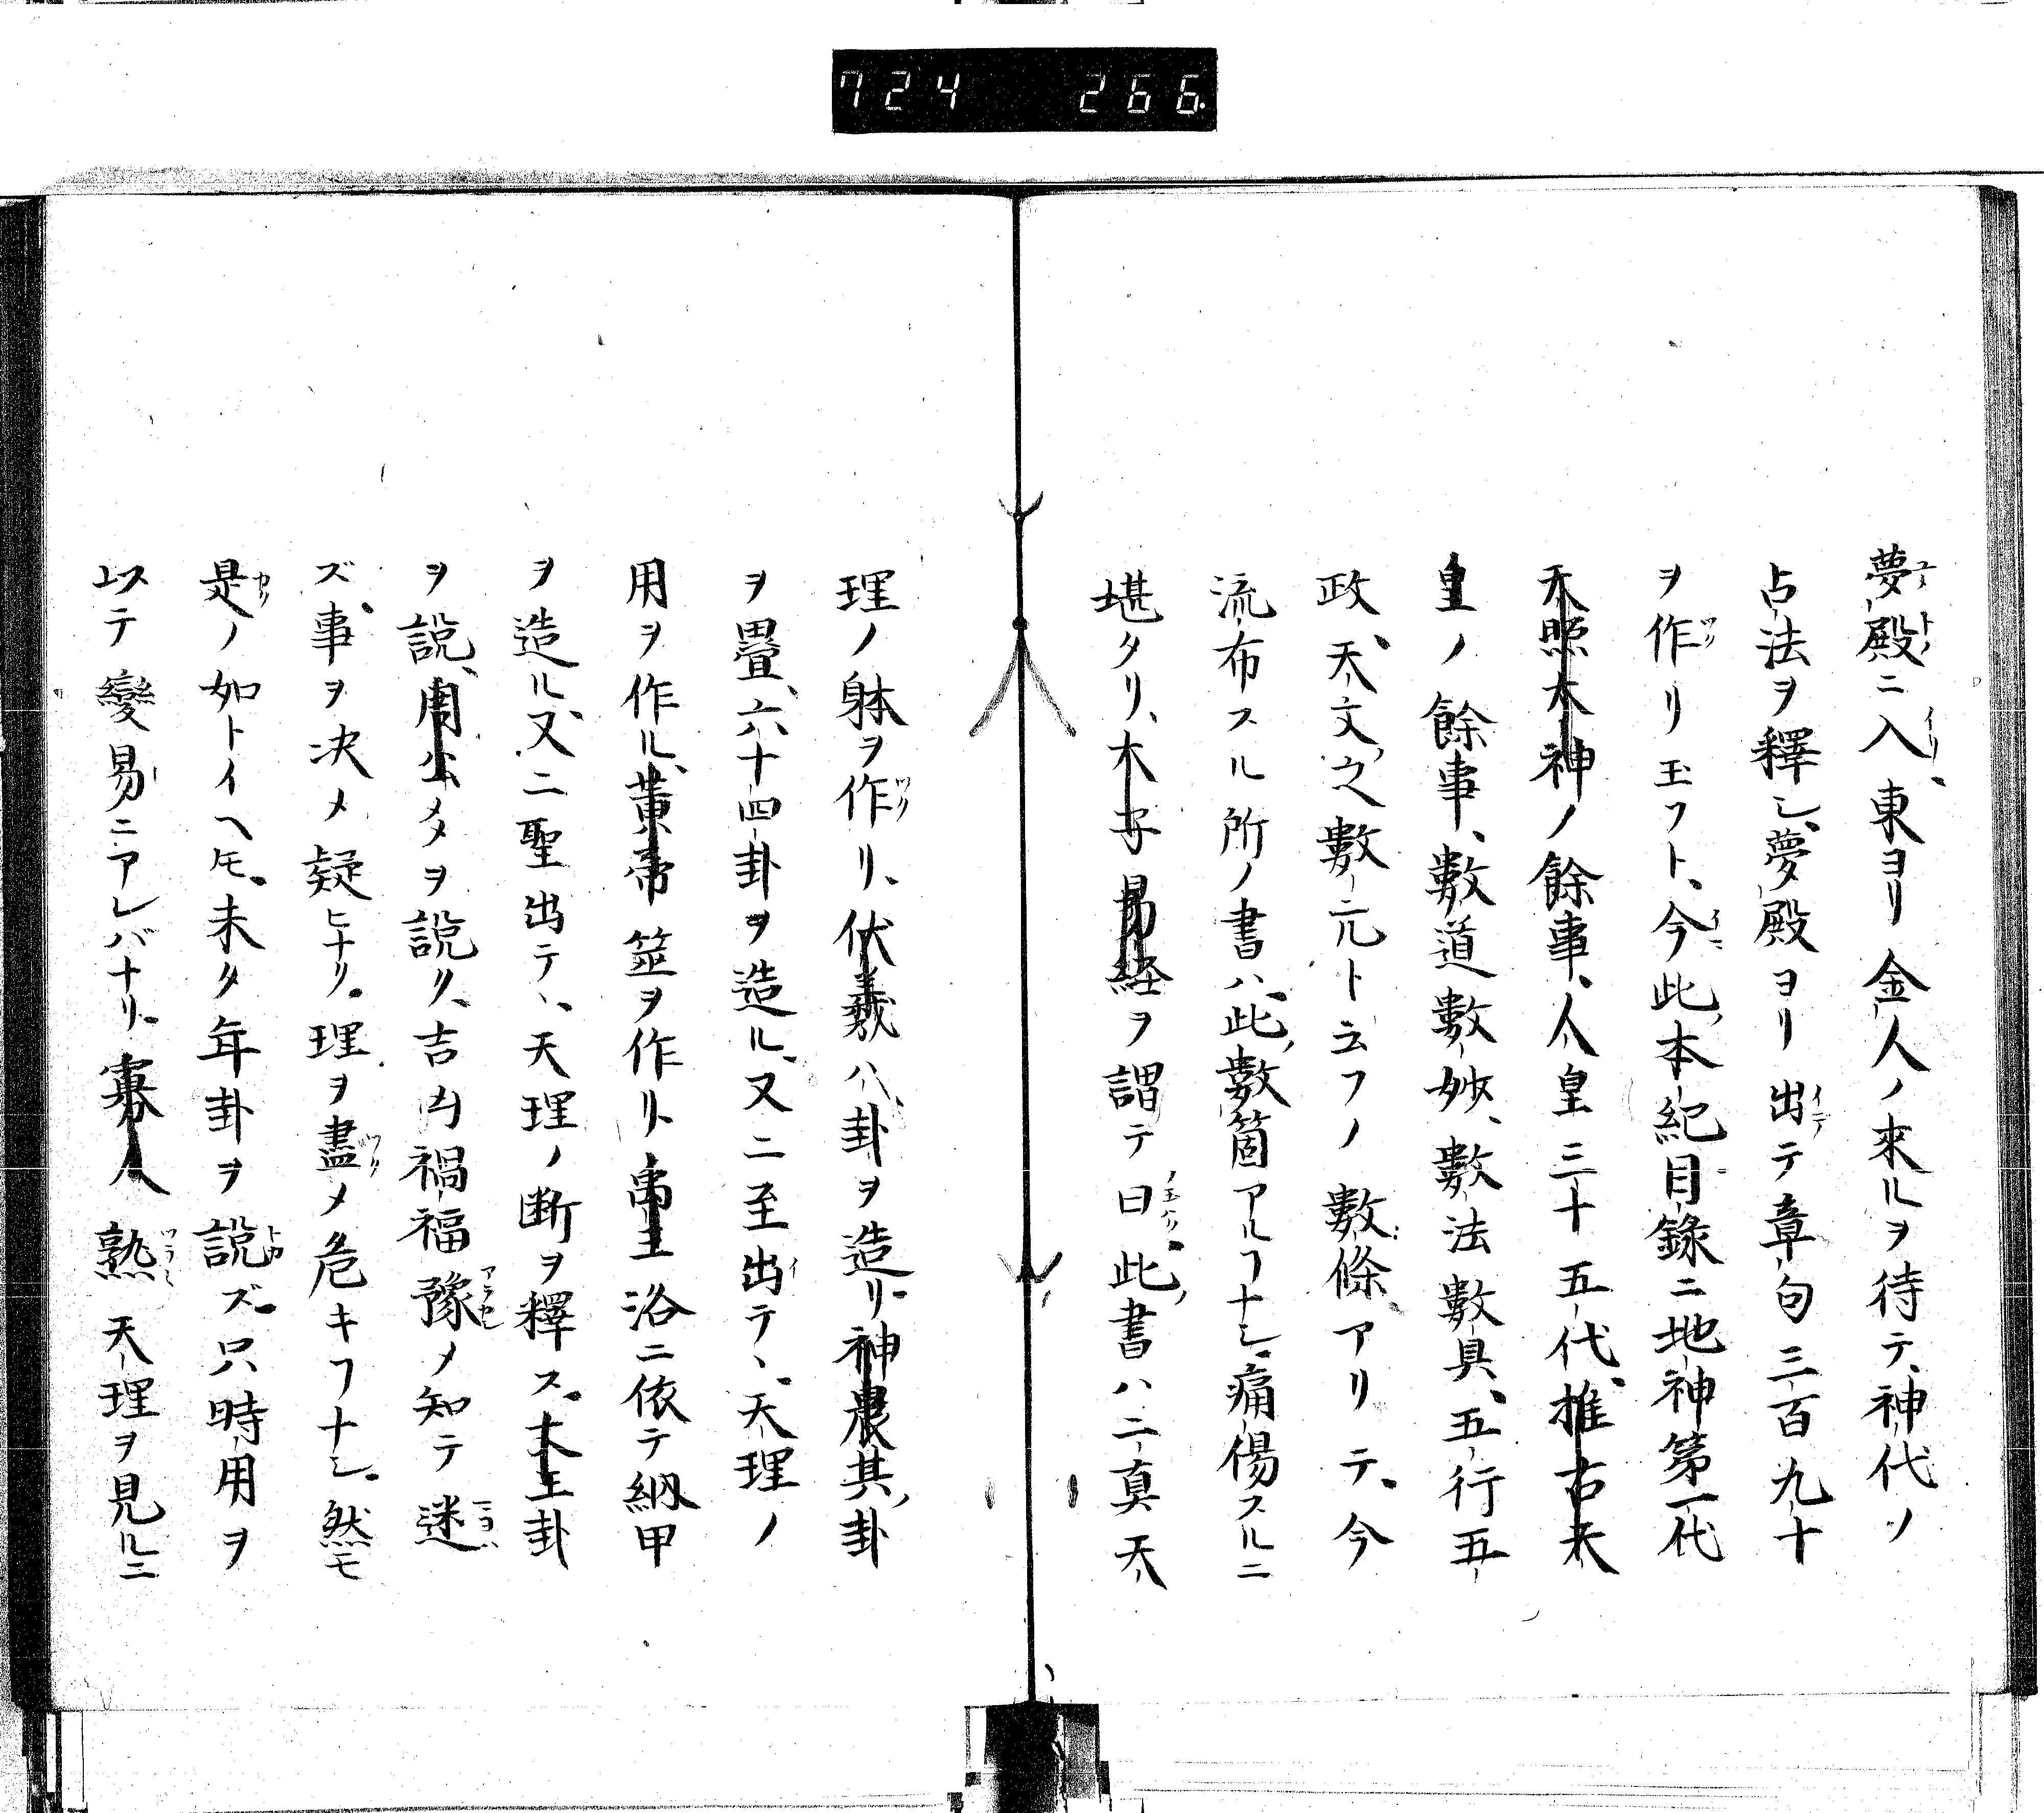 724 266
夢殿ニ入、東ヨリ金人ノ來ルヲ待テ、神代ノ
占法ヲ釋シ、夢殿ヨリ出テ章句三百九十
ヲ作リ玉フト、今此本紀目錄ニ地神第一代
天照太神ノ餘事、人皇三十五代、推古天
皇ノ餘事、數道數妙、數法數具、五行五
政、天文之數元ト云フノ數條アリテ、今
流布スル所ノ書ハ、此數箇アルヿナシ、痛傷スルニ
堪タリ、木子易経ヲ謂テ曰此書ハ二真天
理ノ躰ヲ作リ、伏羲八卦ヲ造リ、神農其卦
ヲ疊、六十四卦ヲ造ル、又二至出テ、天理ノ
用ヲ作ル、黄帝筮ヲ作リ、禹王洛ニ依テ納甲
ヲ造ル、又二聖出テ、天理ノ断ヲ釋ス、文王卦
ヲ説、周公爻ヲ説ク、吉凶禍福豫メ知テ迷
ズ、事ヲ決メ疑ヒナリ。理ヲ盡メ危キヿナシ。然モ
是ノ如トイヘ𪜈、未タ年卦ヲ説ズ、只時用ヲ
以テ變易ニアレバナリ、寡人熟天理ヲ見ルニ